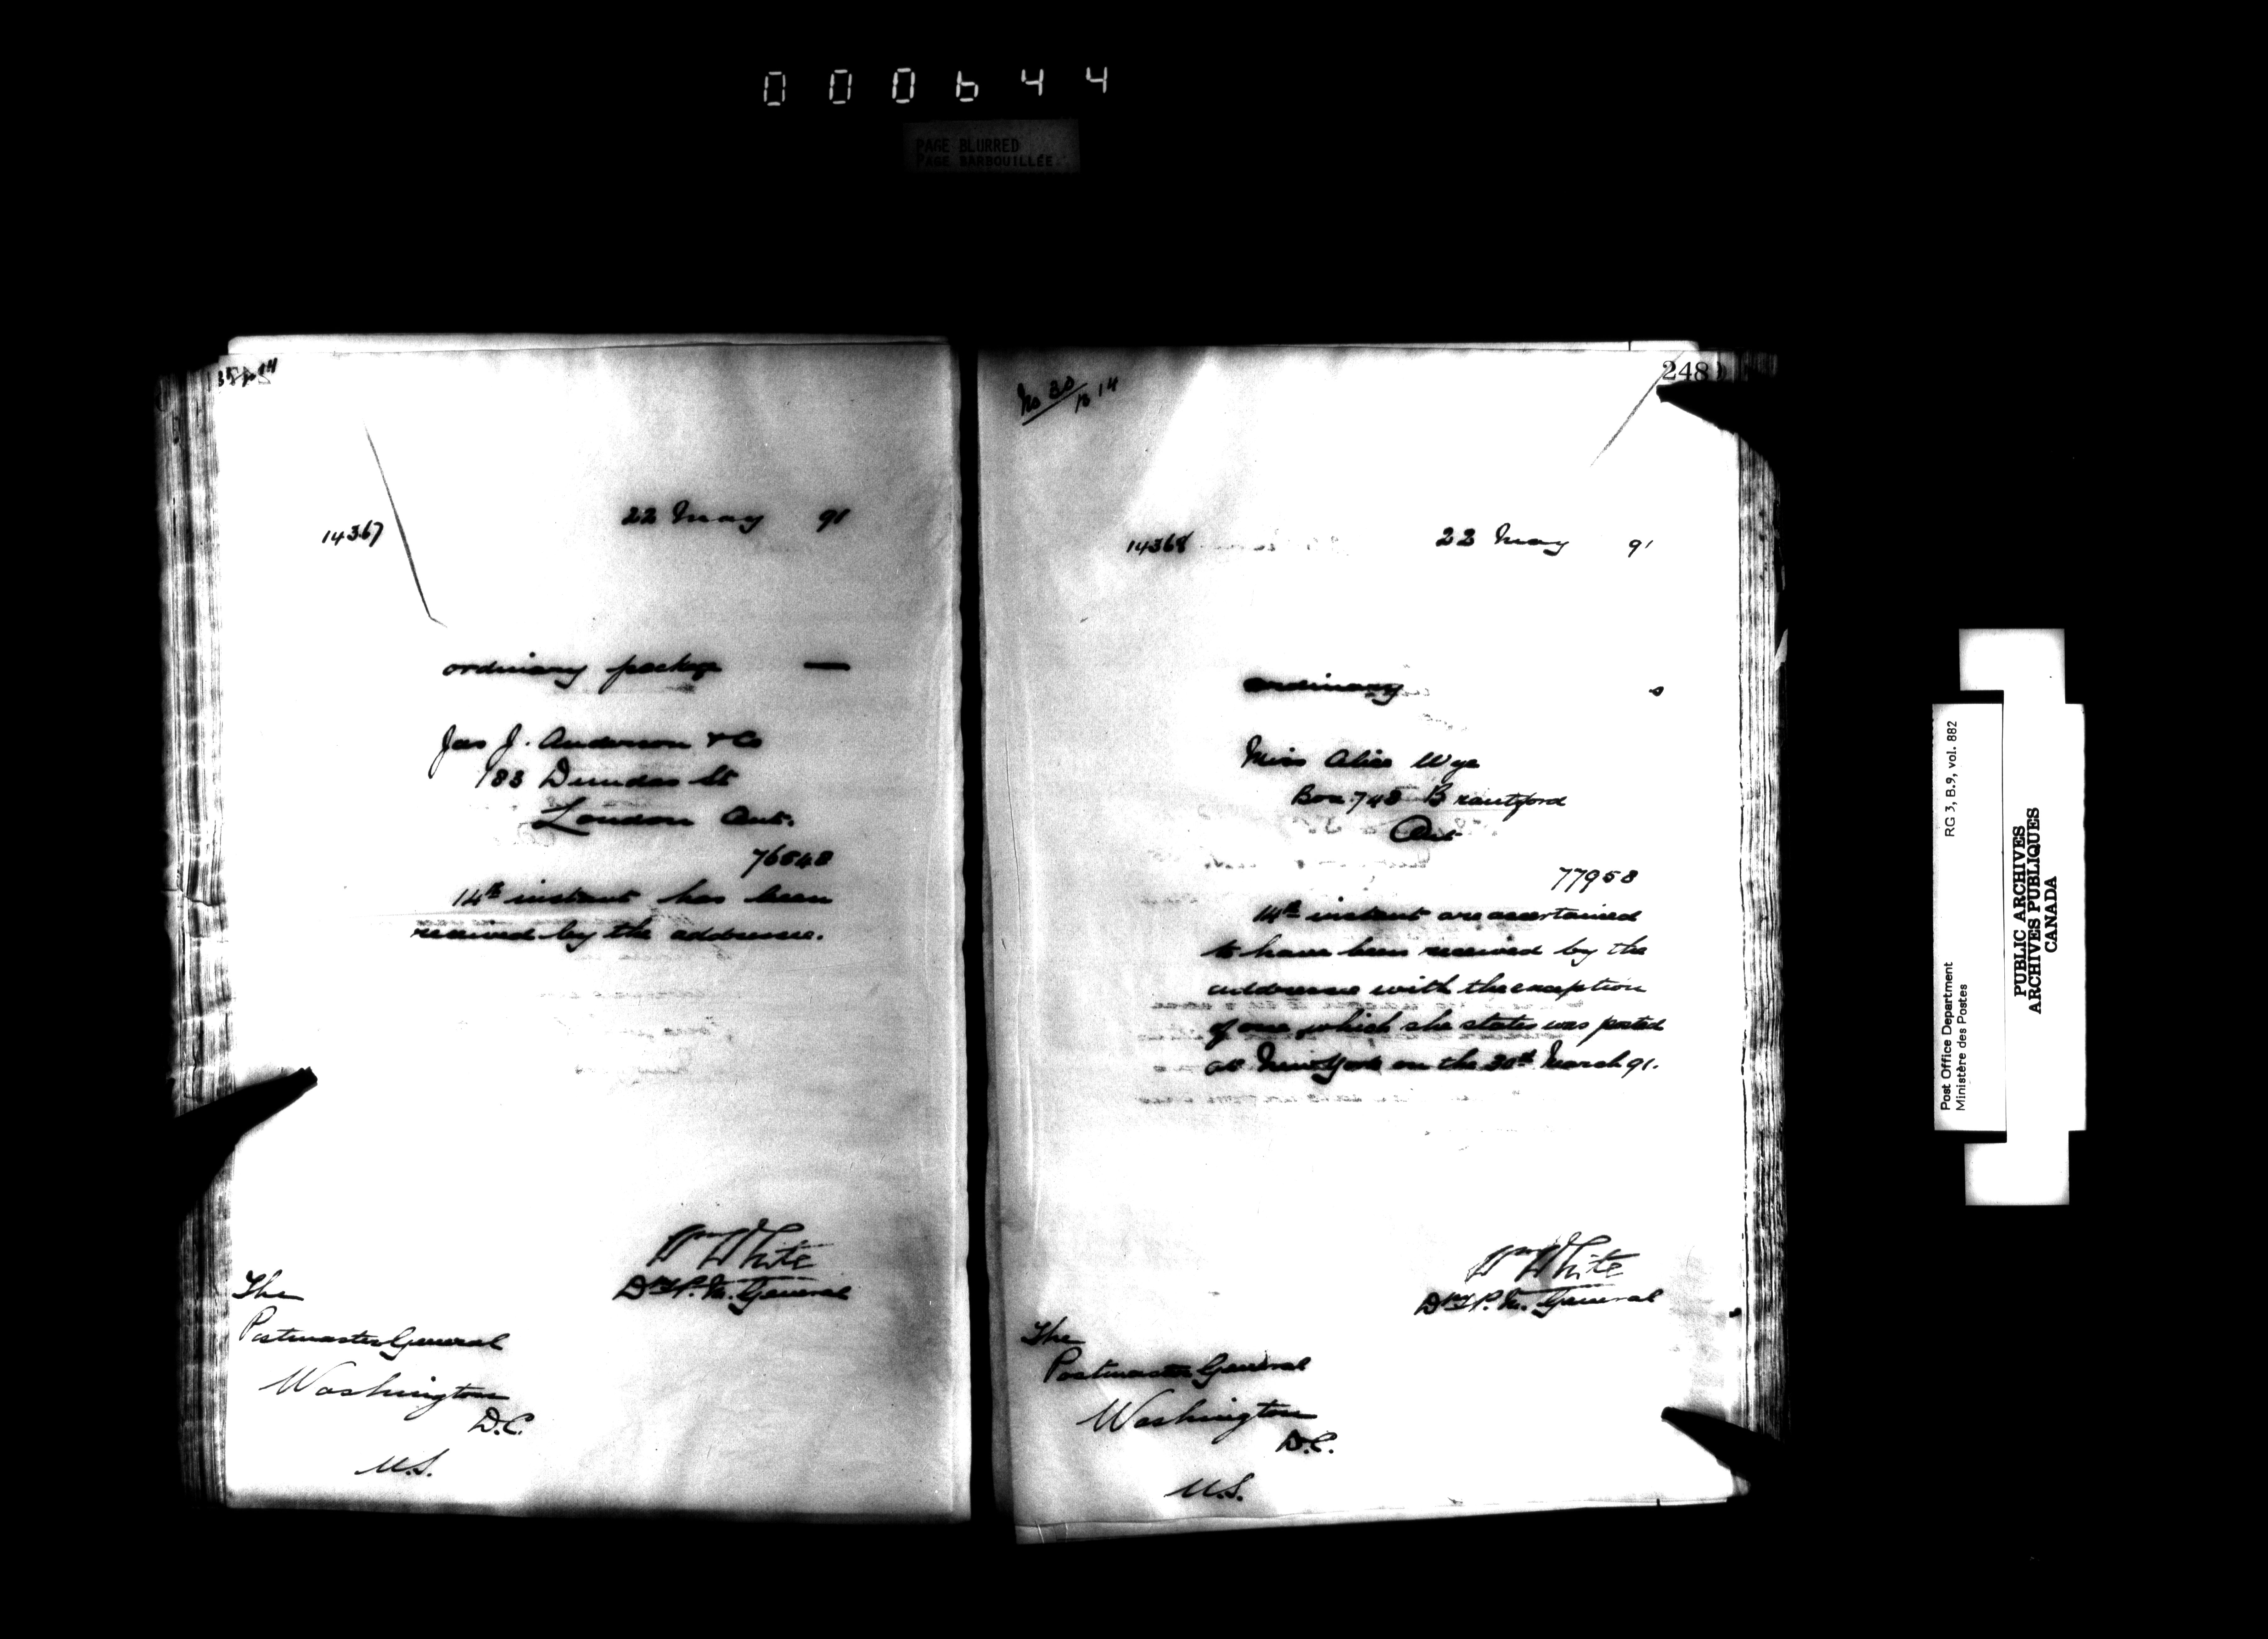 000644
PAGE BLURRED
PAGE BARBOUILLÉE
14367
22 May 91
ordinary package —
Jas J. Anderson & Co
183 Dundas St
London Ont.
76548
14th instant has been
received by the addressee.
Wm White
Dy P. M. General
The
Postmaster General
Washington
D.C.
U.S.
248
No 30/B 14
14368
22 May 91
ordinary s
Miss Alice Wye
Box 748 Brantford
Ont
77958
14th instant are ascertained
to have been received by the
addressee with the exception
of one which she states was posted
at New York on the 30th March 91.
Wm White
Dy P. M. General
The
Postmaster General
Washington
D.C.
U.S.
Post Office Department
Ministère des Postes
RG 3, B.9, vol. 882
PUBLIC ARCHIVES
ARCHIVES PUBLIQUES
CANADA